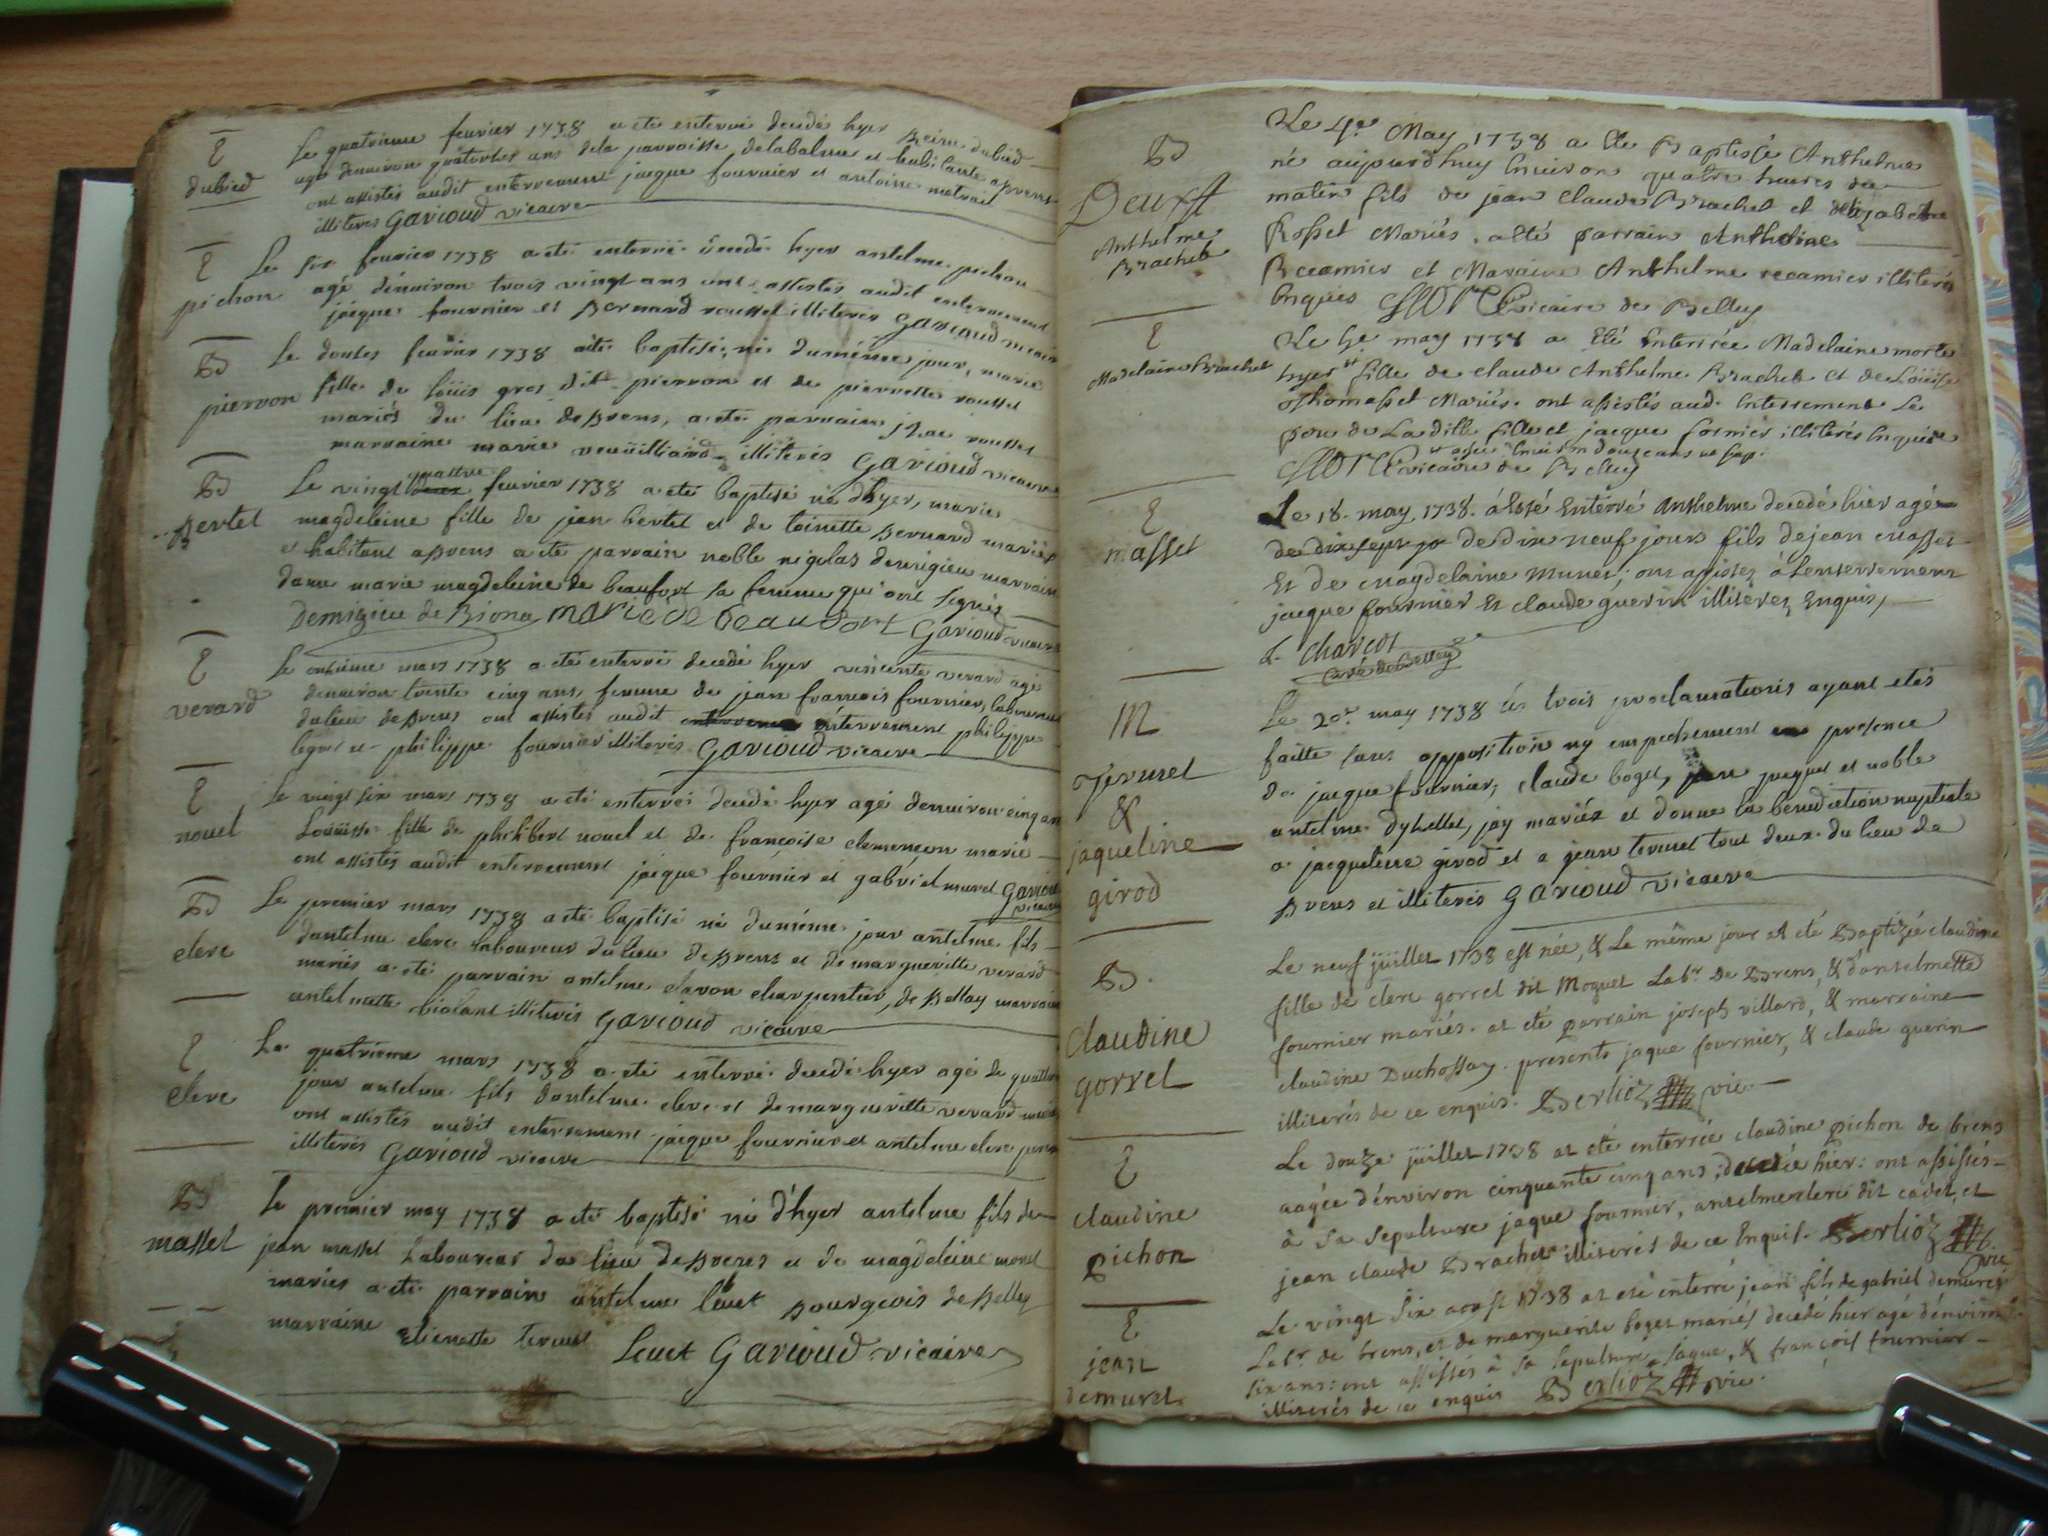 E
dubied
Le quatrieme feurier 1738 a eté enterré decedé hyer
agé denuiron quatorses ans dela parroisse delabalme et habitante abrens
ont assistés audit enterrement jacque fournier et antoine
illiterés Garioud vicaire
E
pichon
Le six feurier 1738 a eté enterré decedé hyer antelme pichon
agé d'enuiron trois vingt ans ont assistés audit enterrement
jacque fournier et Bernard roussel illiterés Garioud vicaire
B
pierron
Le douses feurier 1738 a eté baptisé, né du méme jour, marie
fille de loüis gros dit pierron et de pierrette roussel
mariés du lieu de Brens, a eté parrain roussel
marraine marie illiterés Garioud vicaire
B
Bertet
Le vingt quattre feurier 1738 a eté baptisé né d'hyer, marie
magdeleine fille de jean bertet et de toinette Bernard mariés
et habitant abrens a eté parrain noble nicolas demigieu marraine
dame marie magdeleine de beaufort sa femme qui ont signés
Demigieu de Biona marie de beaufort Garioud vicaire
E
verard
Le onsiéme mars 1738 a eté enterré decedé hyer vincente verard agé
denuiron trente cinq ans, femme de jean francois fournier, laboureur
du lieu de Brens ont assistés audit enterrement philippe
legros et philippe fournier illiterés Garioud vicaire
E
nouel
Le vingt six mars 1738 a eté enterré decedé hyer agé denuiron cinq an
Loüisse fille de philibert nouel et de françoise clemençon marié
ont assistés audit enterrement jacque fournier et gabriel muret Garioud
vicaire
B
clerc
Le premier mars 1738 a eté baptisé né du méme jour antelme fils
dantelme clerc laboureur du lieu de Brens et de margueritte verard
mariés a eté parrain antelme clavon charpentier, de Bellay marraine
antelmette biolant illiterés Garioud vicaire
E
clerc
Le quatrieme mars 1738 a eté enterré decedé hyer agé de quattre
jour antelme fils dantelme clerc et de marguerite verard mariés
ont assistés audit enterrement jacque fournier et antelme clerc
illiterés Garioud vicaire
B
masset
Le premier may 1738 a eté baptisé né d'hyer antelme fils de
jean masset Laboureur du lieu de Brens et de magdeleine monet
mariés a eté parrain antelme leuet Bourgeois de Belley
marraine etienette ternet Leuet Garioud vicaire
B
Anthelme
Brachet
Le 4e. May 1738 a ete Baptissé Anthelme
né aujourd'huy Enuiron quatre heures du
matin fils de jean Claude Brachet et d'elizabethe
Rosset Mariés. a eté parrain Anthelme
Recamier et Maraine Anthelme recamier illiterés
Enquis vicaire de Belley
E
Madelaine Brachet
Le 5e. may 1738 a Eté Enterrée Madelaine morte
hyer fille de claude Anthelme Brachet et de Loüise
Thomasset Mariés. ont assistés aud. Enterrement Le
pere de La ditte fille et jacque fornier illiterés Enquis
vicaire de Belley
E
masset
Le 18. may 1738. á Esté Entérré Anthelme decedé hier agé
de dix sept jo de dix neuf jours fils de jean Masset
Et de Magdelaine Munet; ont assistez á Lenterrement
jacque fournier Et claude guerin illiterez Enquis,
Charcot
Curé de Belley
M
Ternet
&
jaqueline
girod
Le 20e. may 1738 les trois proclamations ayant etés
faitte sans opposition ny empechement en presence
de jacque fournier, claude boget, jacquet et noble
antelme Dyhellet, jay mariéz et donne la benediction nuptiale
a jacqueline girod et a jean ternet tout deux du lieu de
Brens et illiterés Garioud vicaire
B.
Claudine
gorret
Le neuf juillet 1738 est née, & Le même jour at eté Baptizée claudine
fille de clerc gorret dit Moguet Labr. de Brens, & d'antelmette
fournier mariés. at eté parrain joseph villard, & marraine
claudine Duchossay. presents jaque fournier, & claude guerin
illiterés de ce enquis. Berlioz vic.
E
claudine
pichon
Le douze juillet 1738 at eté enterrée claudine pichon de brens
aagée d'énviron cinquante cinq ans; decedée hier: ont assistés
à sa sepulture jaque fournier, antelme clerc dit cadet, et
jean claude Brachet illiterés de ce Enquis. Berlioz
vic.
E
jean
demuret.
Le vingt six aoust 1738 at eté enterré jean fils de gabriel demuret
Labr. de brens, et de marguerite boget mariés decedé hier agé d'énviron
six ans: ont assistés à sa sepulture jaque, & françois fournier
illiterés de ce enquis Berlioz vic.